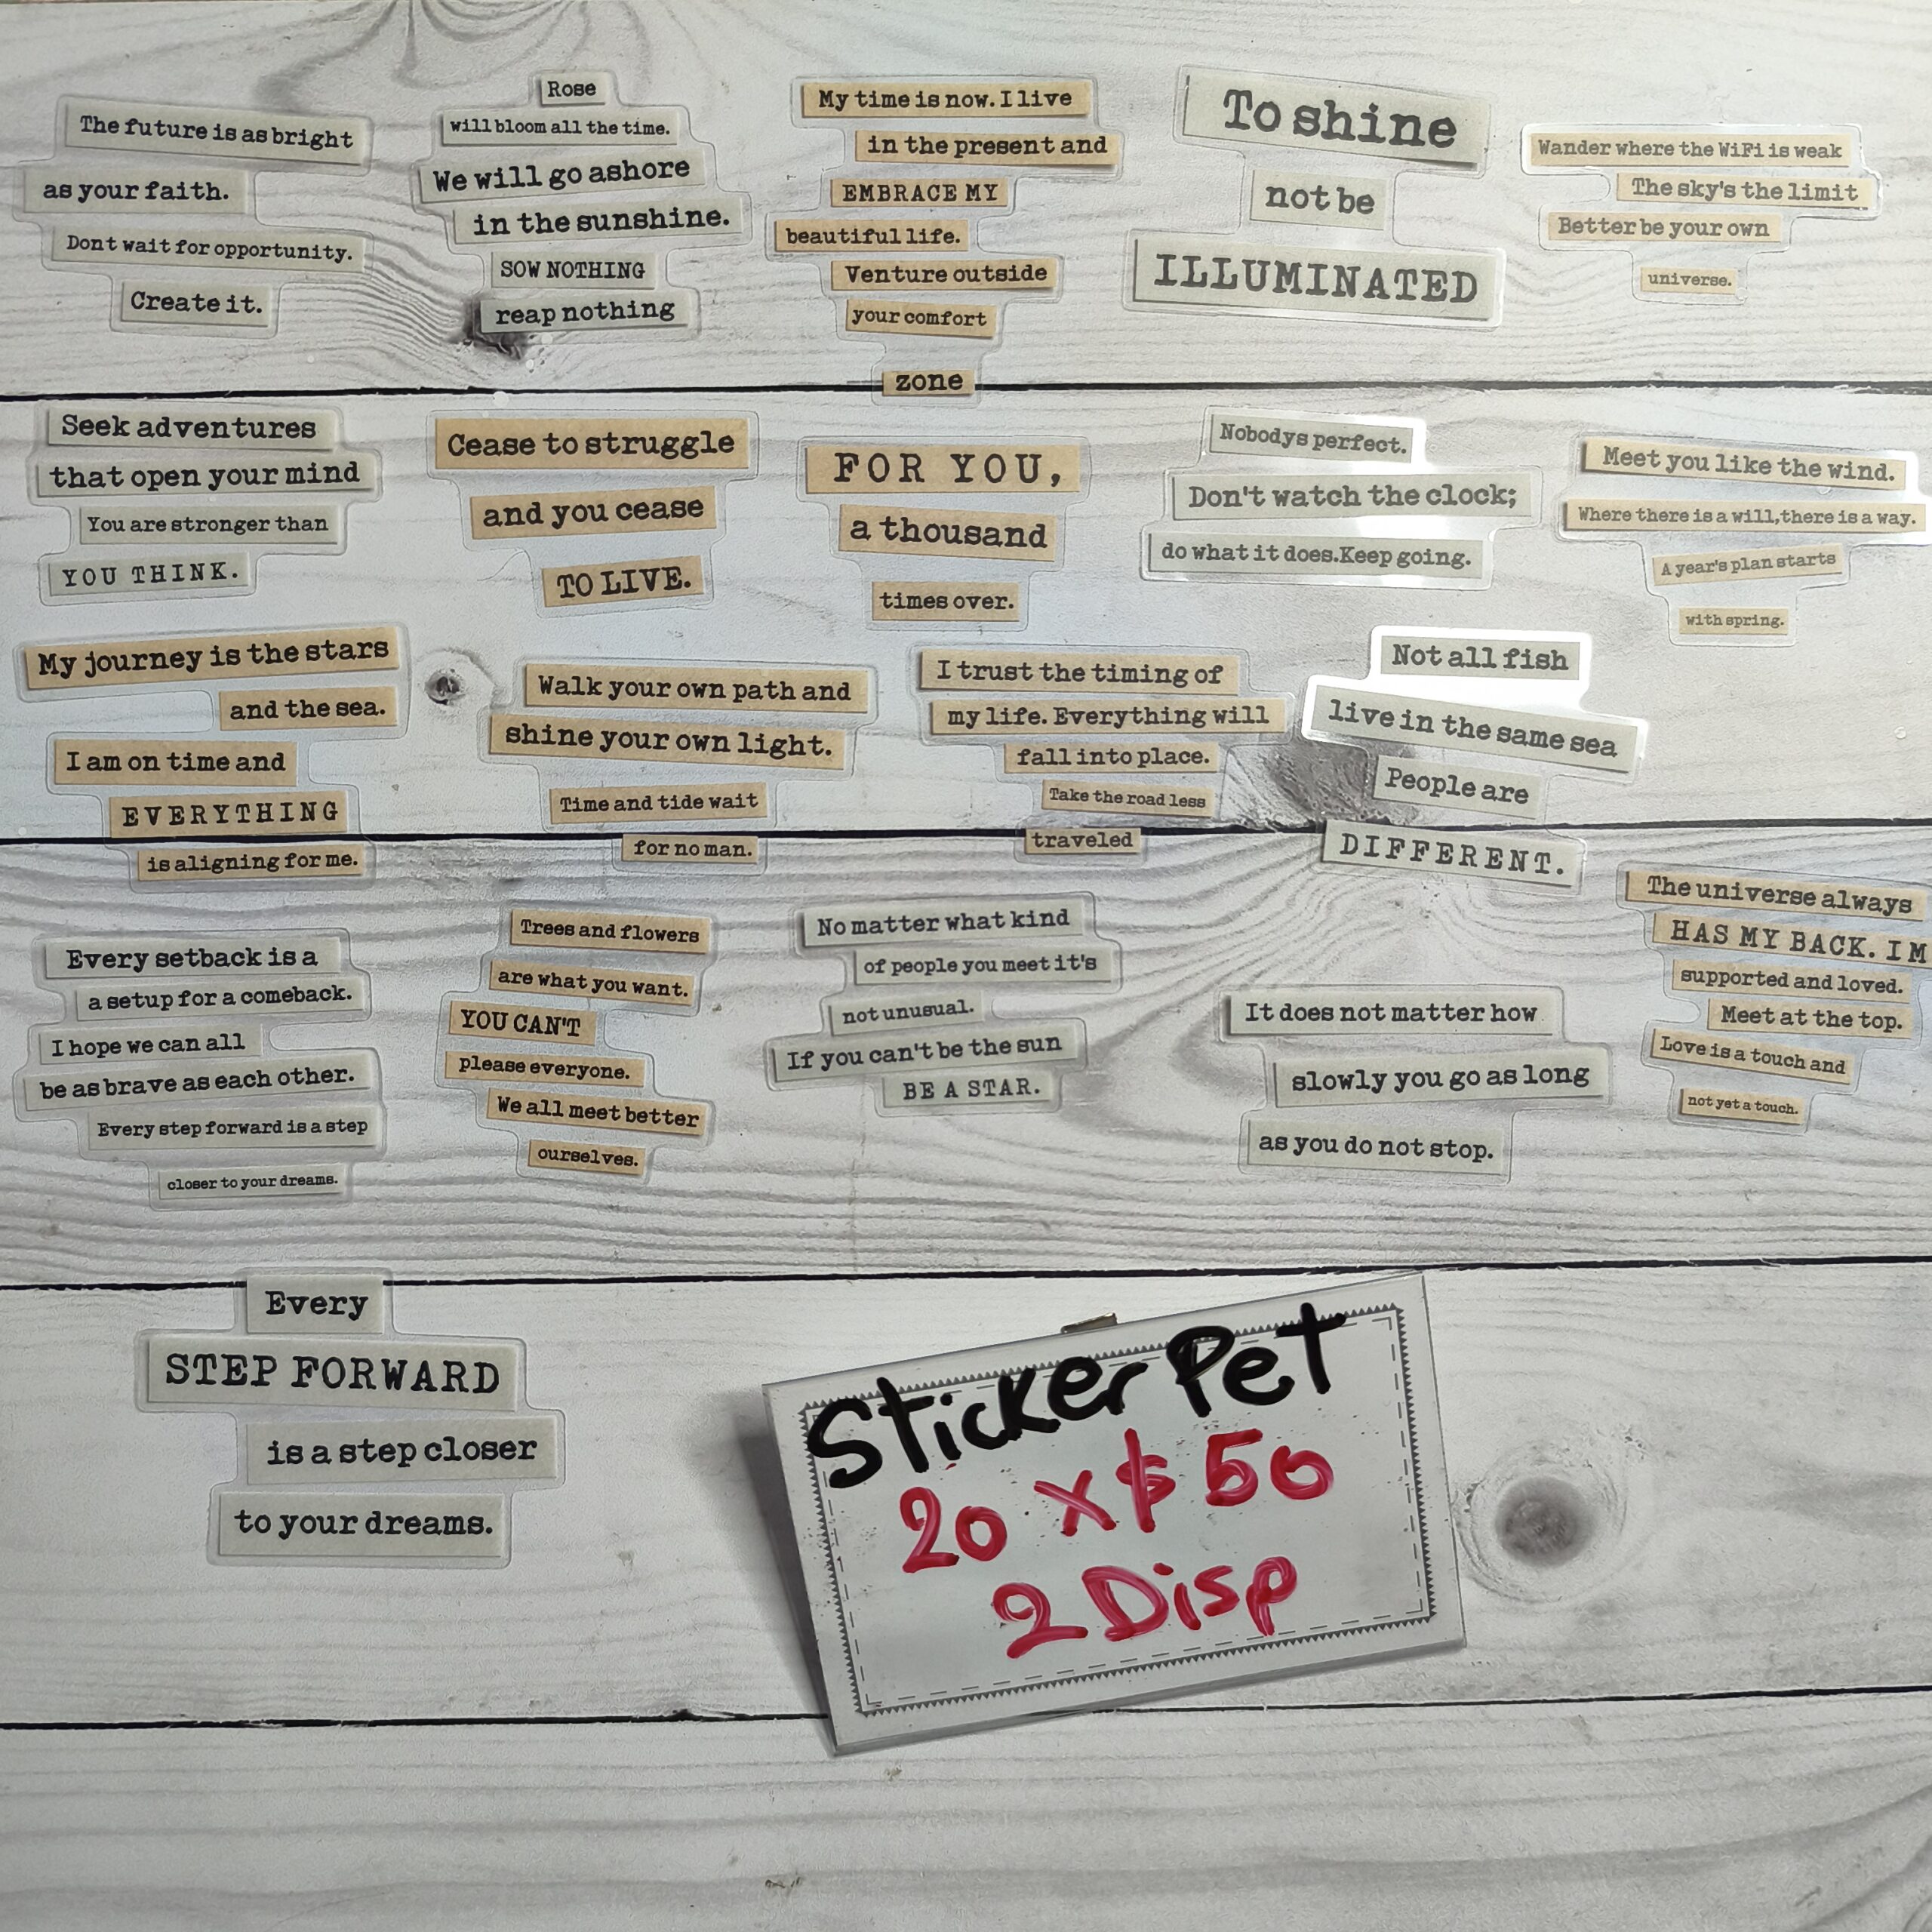 The future is as bright
as your faith.
Dont wait for opportunity.
Create it.
Rose
will bloom all the time.
We will go ashore
in the sunshine.
SOW NOTHING
reap nothing
My time is now. I live
in the present and
EMBRACE MY
beautiful life.
Venture outside
your comfort
zone
To shine
not be
ILLUMINATED
Wander where the WiFi is weak
The sky's the limit
Better be your own
universe.
Seek adventures
that open your mind
You are stronger than
YOU THINK.
Cease to struggle
and you cease
TO LIVE.
FOR YOU,
a thousand
times over.
Nobodys perfect.
Don't watch the clock;
do what it does.Keep going.
Meet you like the wind.
Where there is a will,there is a way.
A year's plan starts
with spring.
My journey is the stars
and the sea.
I am on time and
EVERYTHING
is aligning for me.
Walk your own path and
shine your own light.
Time and tide wait
for no man.
I trust the timing of
my life. Everything will
fall into place.
Take the road less
traveled
Not all fish
live in the same sea
People are
DIFFERENT.
Every setback is a
a setup for a comeback.
I hope we can all
be as brave as each other.
Every step forward is a step
closer to your dreams.
Trees and flowers
are what you want.
YOU CAN'T
please everyone.
We all meet better
ourselves.
No matter what kind
of people you meet it's
not unusual.
If you can't be the sun
BE A STAR.
It does not matter how
slowly you go as long
as you do not stop.
The universe always
HAS MY BACK. I M
supported and loved.
Meet at the top.
Love is a touch and
not yet a touch.
Every
STEP FORWARD
is a step closer
to your dreams.
Sticker Pet
20 x $50
2 Disp